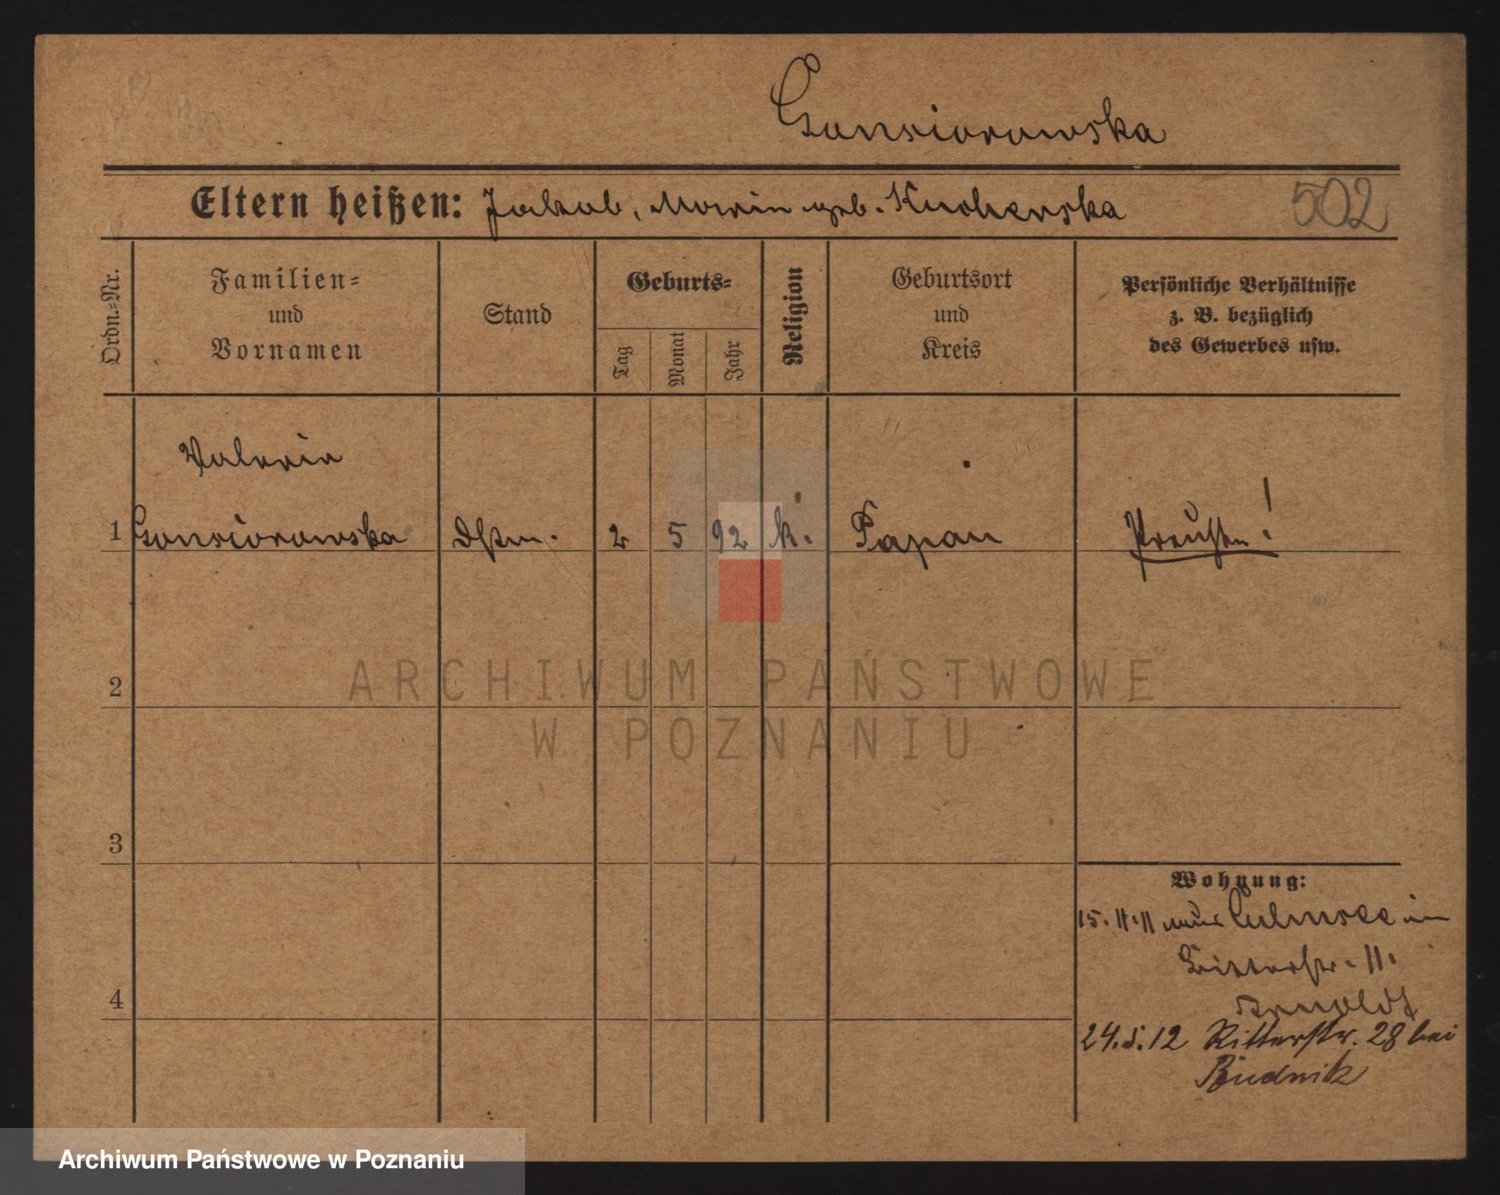 Gonsiorowska
Eltern heißen: Jakob, Maria geb. Kucherska
502
Ordn.-Nr.
Familien-
und
Vornamen
Stand
Geburts-
Tag
Monat
Jahr
Religion
Geburtsort
und
Kreis
Persönliche Verhältnisse
z. B. bezüglich
des Gewerbes usw.
Valeria
1 Gonsiorowska dstm. 2 5 92 k. Papau Preußen!
2
ARCHIWUM PAŃSTWOWE
W POZNANIU
3
Wohnung:
15. 11. 11 aus Culmsee in
Ritterstr. 11.
4
Arnoldt
24.5.12 Ritterstr. 28 bei
Budnik
Archiwum Państwowe w Poznaniu